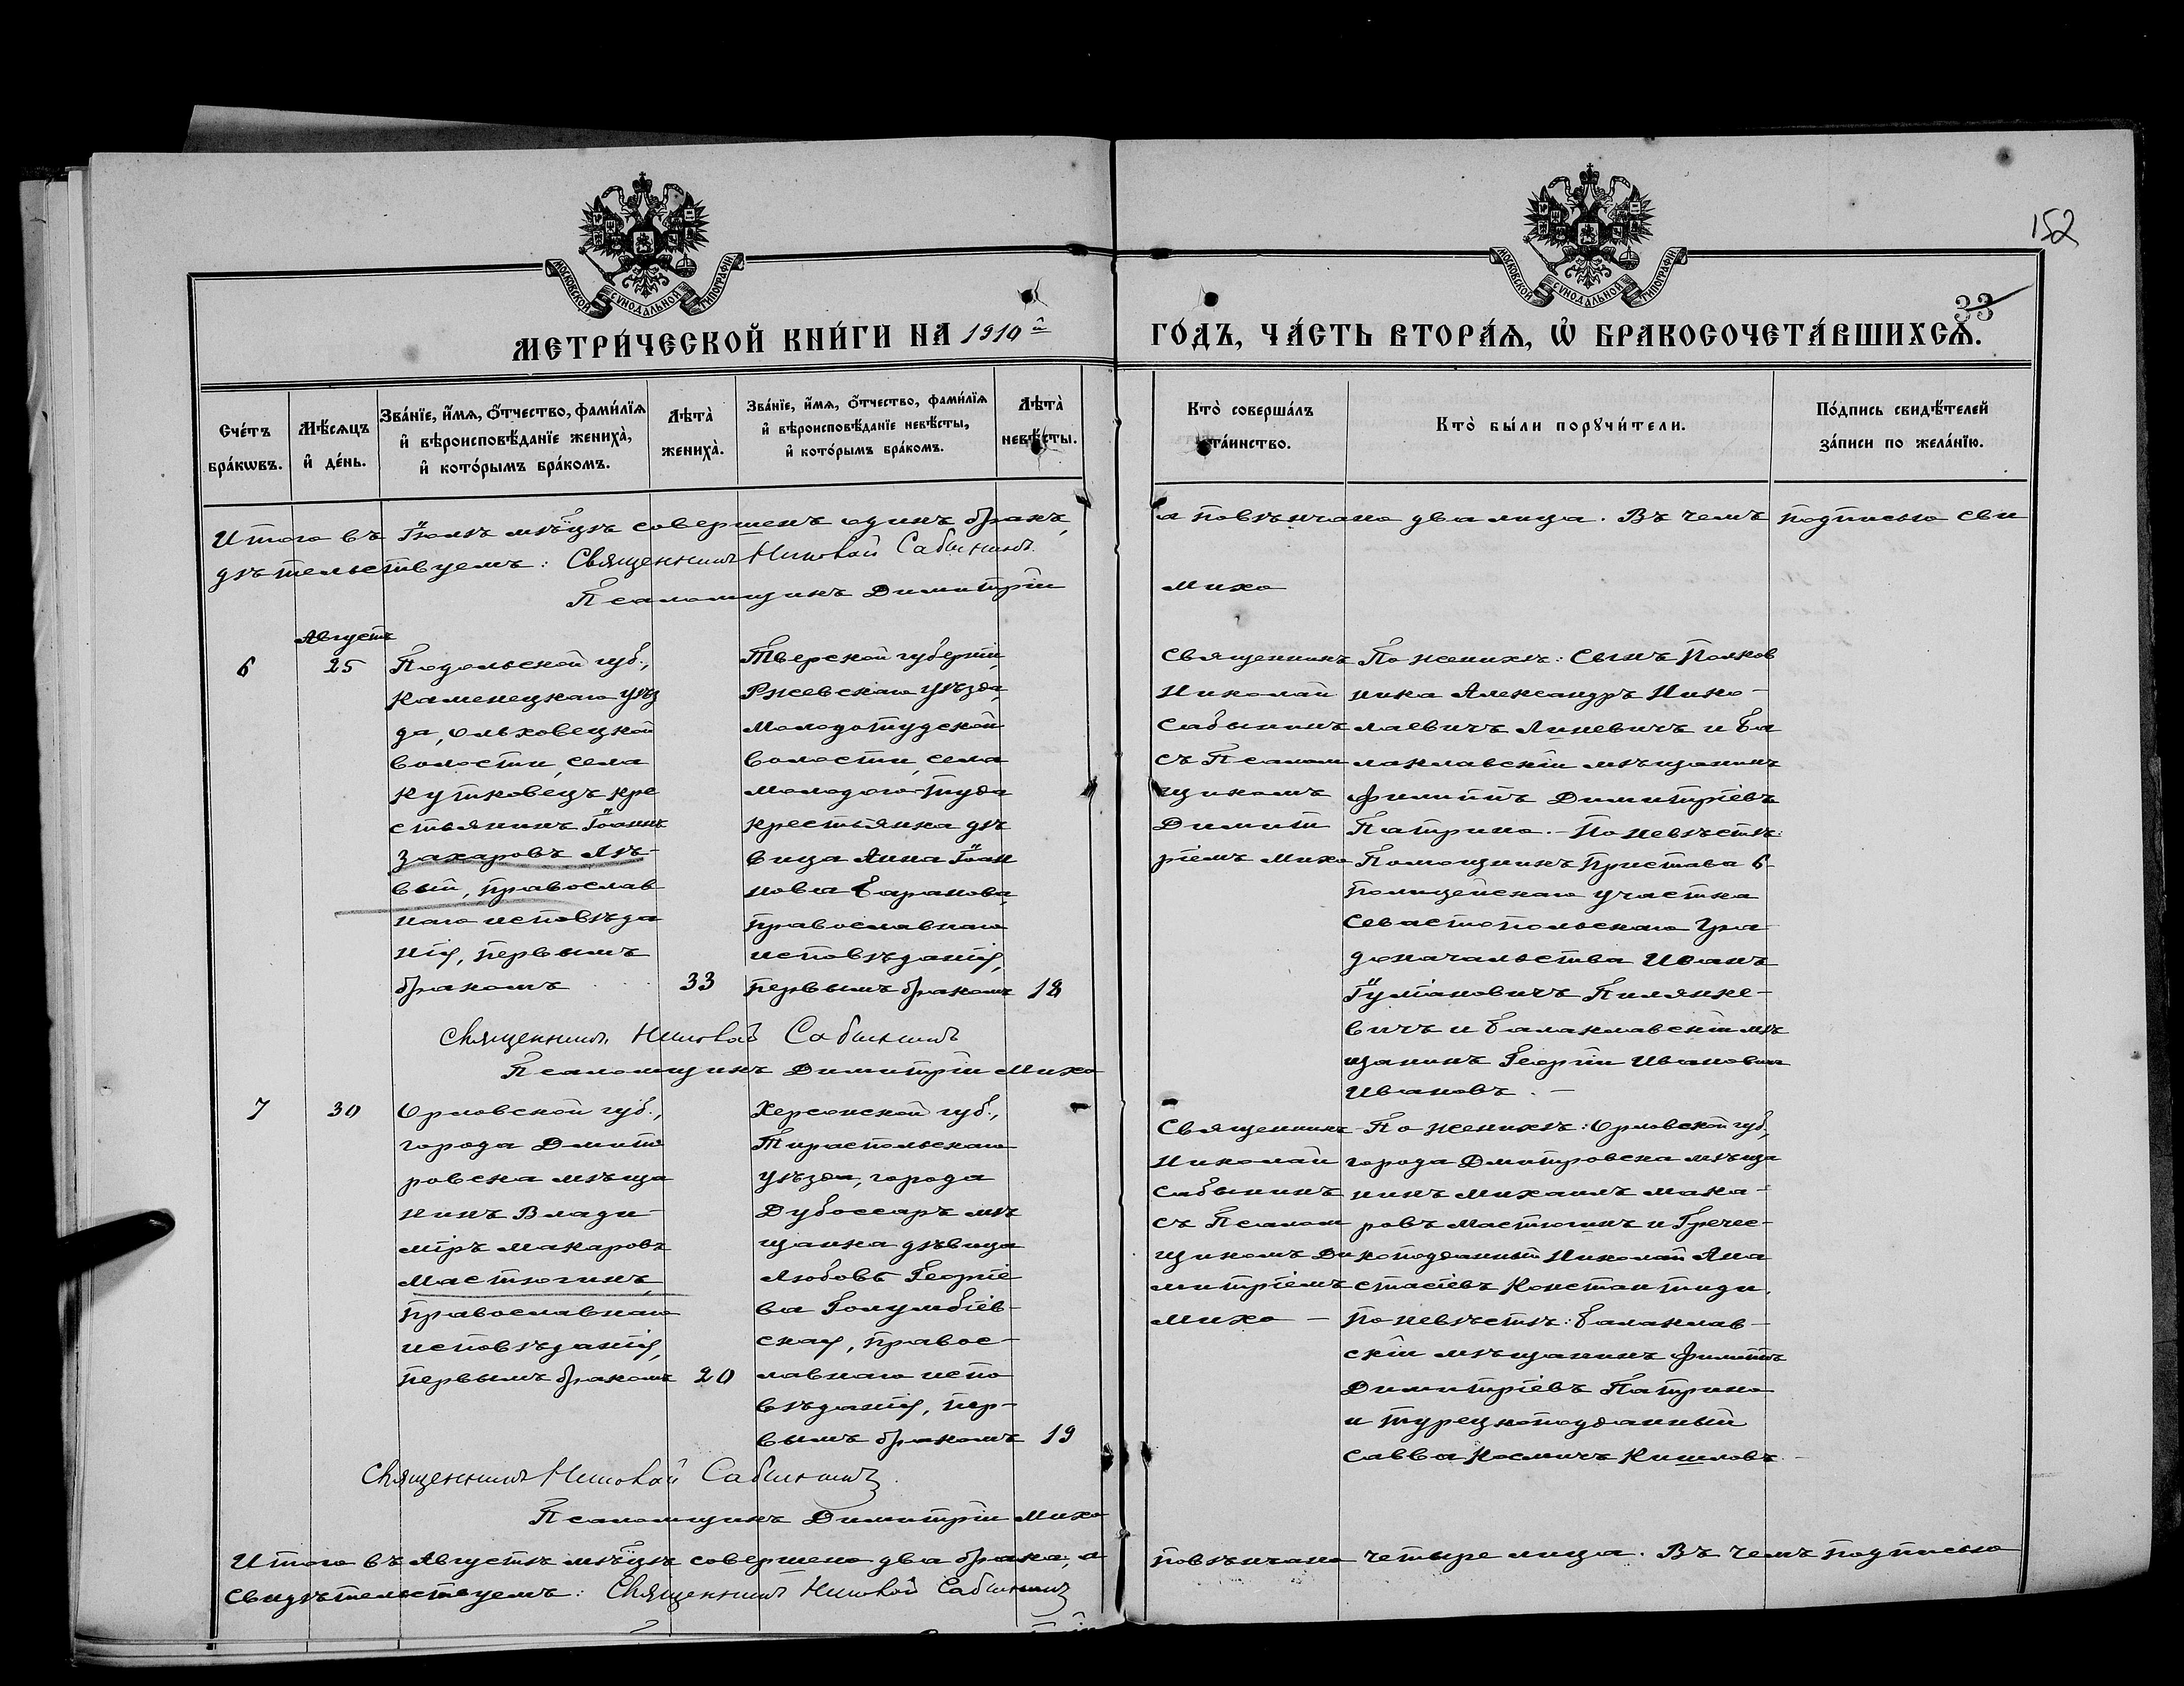 152
33
МОСКОВСКОЙ СѴНОДАЛЬНОЙ ТИПОГРАФІИ
МОСКОВСКОЙ СѴНОДАЛЬНОЙ ТИПОГРАФІИ
МЕТРИ́ЧЕСКОЙ КНИ́ГИ НА 1910й ГО́ДЪ, ЧА́СТЬ ВТОРА́Ѧ, Ѡ҆ БРАКОСОЧЕТА́ВШИХСѦ.
Сче́тъ
бра́кѡвъ.
Мѣ́сѧцъ
и҆ де́нь.
Зва́нїе, и҆́мѧ, ѻ҆́тчество, фами́лїѧ
и҆ вѣроисповѣ́данїе жениха̀,
и҆ кото́рымъ бра́комъ.
Лѣта̀
жениха̀.
Зва́нїе, и҆́мѧ, ѻ҆́тчество, фами́лїѧ
и҆ вѣроисповѣ́данїе невѣ́сты,
и҆ кото́рымъ бра́комъ.
Лѣта̀
невѣ́сты.
Кто̀ соверша́лъ
та́инство.
Кто̀ бы́ли порꙋчи́тели.
По́дпись свидѣ́телей
за́писи по жела́нїю.
Итого въ Іюлѣ мѣцѣ совершенъ одинъ бракъ, а повѣнчано два лица. Въ чемъ подписью сви
дѣтельствуемъ: Священникъ Николай Сабынинъ.
Псаломщикъ Димитрій Михо
6
Августъ
25
Подольской губ.,
Каменецкаго уѣз
да, Ольховецкой
волости, села
Кутковецъ кре
стьянинъ Іоаннъ
Захаровъ Лѣ-
вый, православ
наго исповѣда
нія, первымъ
бракомъ
33
Тверской губерніи,
Ржевскаго уѣзда,
Молодотудской
волости, села
Молодого-Туда
крестьянка дѣ
вица Анна Іоан
новна Баранова,
православнаго
исповѣданія,
первымъ бракомъ
18
Священникъ
Николай
Сабынинъ
съ Псалом
щикомъ
Димит
ріемъ Михо
По женихѣ: Сынъ Полков
ника Александръ Нико-
лаевичъ Линевичъ и Ба
лаклавскій мѣщанинъ
Филиппъ Димитріевъ
Патрино. - По невѣстѣ:
Помощникъ Пристава 6-
полицейскаго участка
Севастопольскаго Гра
доначальства Иванъ
Іуліановичъ Пилянке-
вичъ и Балаклавскій мѣ
щанинъ Георгій Ивановичъ
Ивановъ. -
Священникъ Николай Сабынинъ
Псаломщикъ Димитрій Михо
7
30
Орловской губ.,
города Дмит
ровска мѣща
нинъ Влади-
міръ Макаровъ
Мастюгинъ,
православнаго
исповѣданія,
первымъ бракомъ
20
Херсонской губ.,
Тираспольскаго
уѣзда, города
Дубоссаръ мѣ
щанка дѣвица
Любовь Георгіе
ва Голумбіев-
ская, правос-
лавнаго испо
вѣданія, пер-
вымъ бракомъ
19
Священникъ
Николай
Сабынинъ
съ Псалом
щикомъ Ди
митріемъ
Михо -
По женихѣ: Орловской губ.,
города Дмитровска мѣща
нинъ Михаилъ Мака-
ровъ Мастюгинъ и Гречес-
коподданный Николай Ана
стасіевъ Константиди.
По невѣстѣ: Балаклав-
скій мѣщанинъ Филиппъ
Димитріевъ Патрино
и турецкоподданный
Савва Космичъ Кишловъ. -
Священникъ Николай Сабынинъ
Псаломщикъ Димитрій Михо
Итого въ Августѣ мѣцѣ совершено два брака, а повѣнчано четыре лица. Въ чемъ подписью
свидѣтельствуемъ: Священникъ Николай Сабынинъ